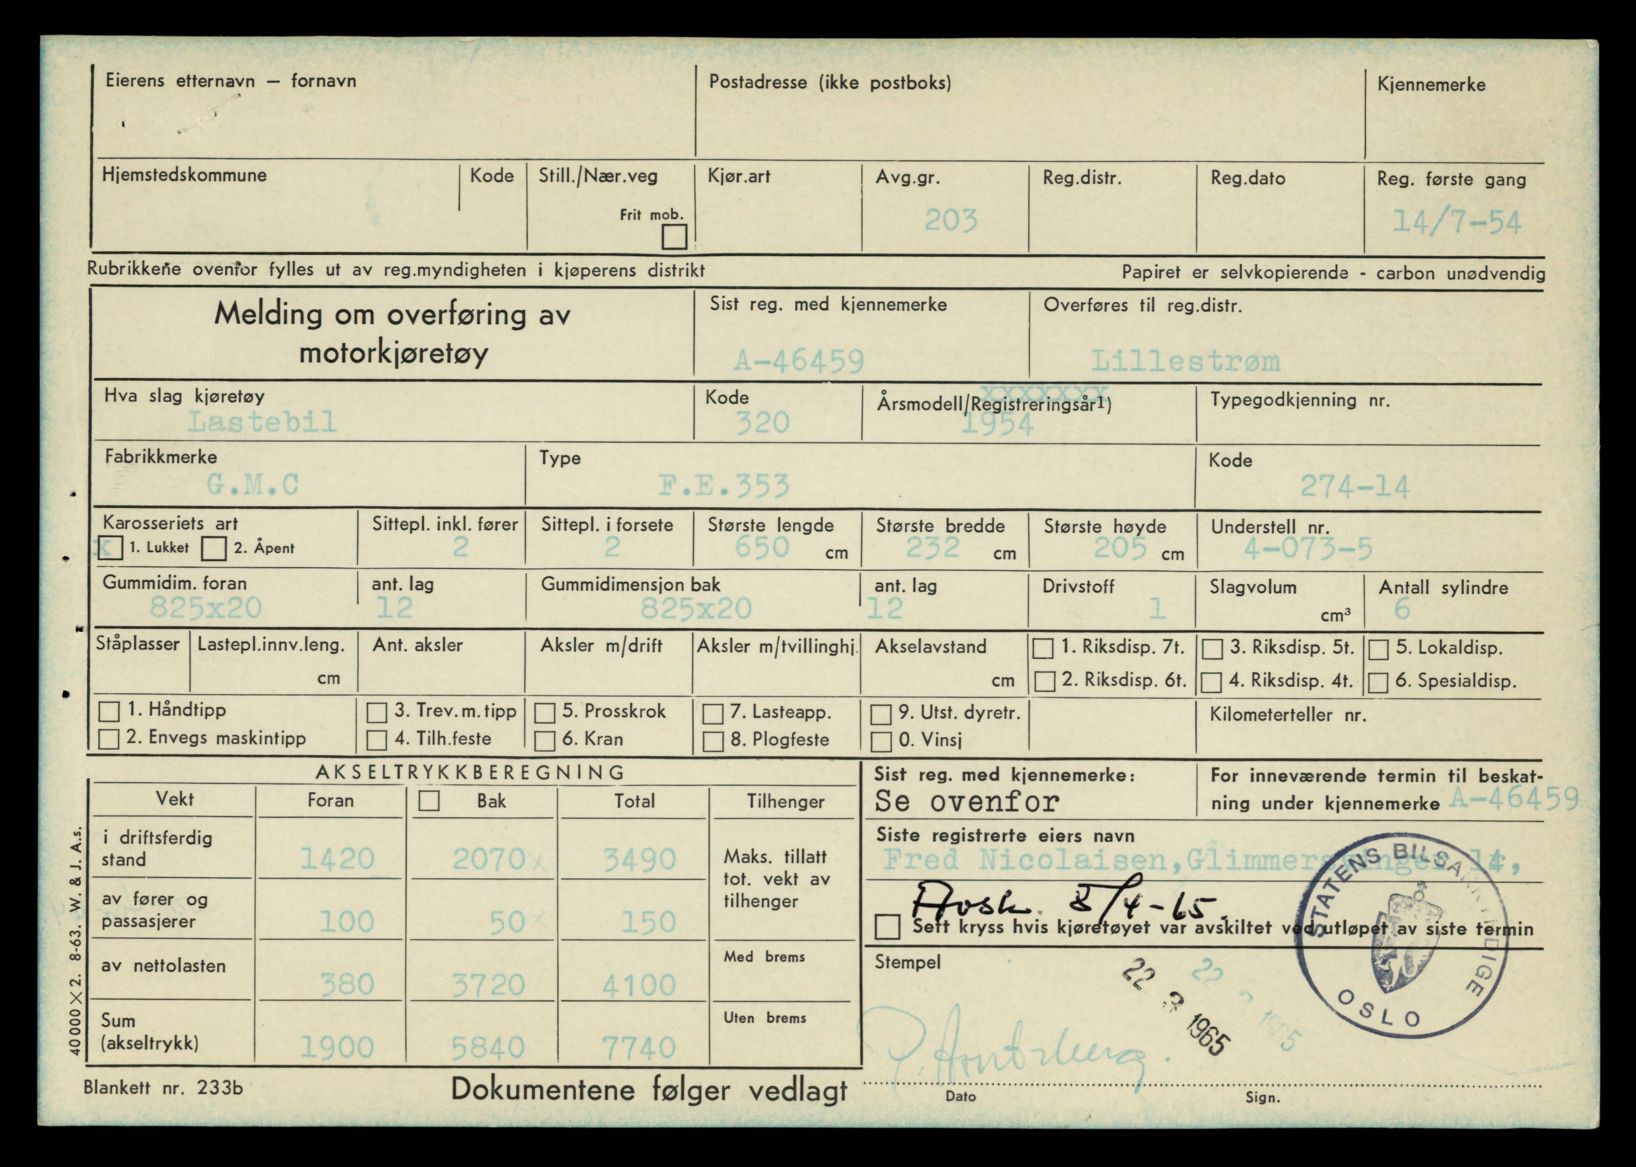 Eierens etternavn — fornavn
Postadresse (ikke postboks)
Kjennemerke
Hjemstedskommune
Kode
Still./Nær.veg
Frit mob.
Kjør.art
Avg.gr.
203
Reg.distr.
Reg.dato
Reg. første gang
14/7-54
Rubrikkene ovenfor fylles ut av reg.myndigheten i kjøperens distrikt
Papiret er selvkopierende - carbon unødvendig
Melding om overføring av
motorkjøretøy
Sist reg. med kjennemerke
A-46459
Overføres til reg.distr.
Lillestrøm
Hva slag kjøretøy
Lastebil
Kode
320
xxxxxxx
Årsmodell/Registreringsår1)
1954
Typegodkjenning nr.
Fabrikkmerke
G.M.C
Type
F.E.353
Kode
274-14
Karosseriets art
x 1. Lukket 2. Åpent
Sittepl. inkl. fører
2
Sittepl. i forsete
2
Største lengde
650 cm
Største bredde
232 cm
Største høyde
205 cm
Understell nr.
4-073-5
Gummidim. foran
825x20
ant. lag
12
Gummidimensjon bak
825x20
ant. lag
12
Drivstoff
1
Slagvolum
cm³
Antall sylindre
6
Ståplasser
Lastepl.innv.leng.
cm
Ant. aksler
Aksler m/drift
Aksler m/tvillinghj.
Akselavstand
cm
1. Riksdisp. 7t.
2. Riksdisp. 6t.
3. Riksdisp. 5t.
4. Riksdisp. 4t.
5. Lokaldisp.
6. Spesialdisp.
1. Håndtipp
2. Envegs maskintipp
3. Trev.m.tipp
4. Tilh.feste
5. Prosskrok
6. Kran
7. Lasteapp.
8. Plogfeste
9. Utst. dyretr.
0. Vinsj
Kilometerteller nr.
AKSELTRYKKBEREGNING
Vekt Foran Bak Total Tilhenger
i driftsferdig
stand 1420 2070 3490
av fører og
passasjerer 100 50 150
av nettolasten 380 3720 4100
Sum
(akseltrykk) 1900 5840 7740
Maks. tillatt
tot. vekt av
tilhenger
Med brems
Uten brems
Sist reg. med kjennemerke:
Se ovenfor
For inneværende termin til beskat-
ning under kjennemerke A-46459
Siste registrerte eiers navn
Fred Nicolaisen,
Avsk. 5/4-65.
Sett kryss hvis kjøretøyet var avskiltet ved utløpet av siste termin
Stempel
STATENS BILSAKKYNDIGE
OSLO
22 3 1965
Dato
Sign.
Blankett nr. 233b
Dokumentene følger vedlagt
40 000 X 2. 8-63. W. & J. A.s.